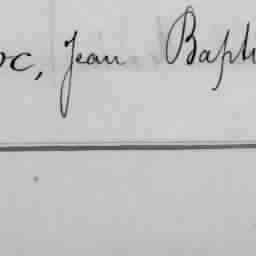 oc, Jean Bapti